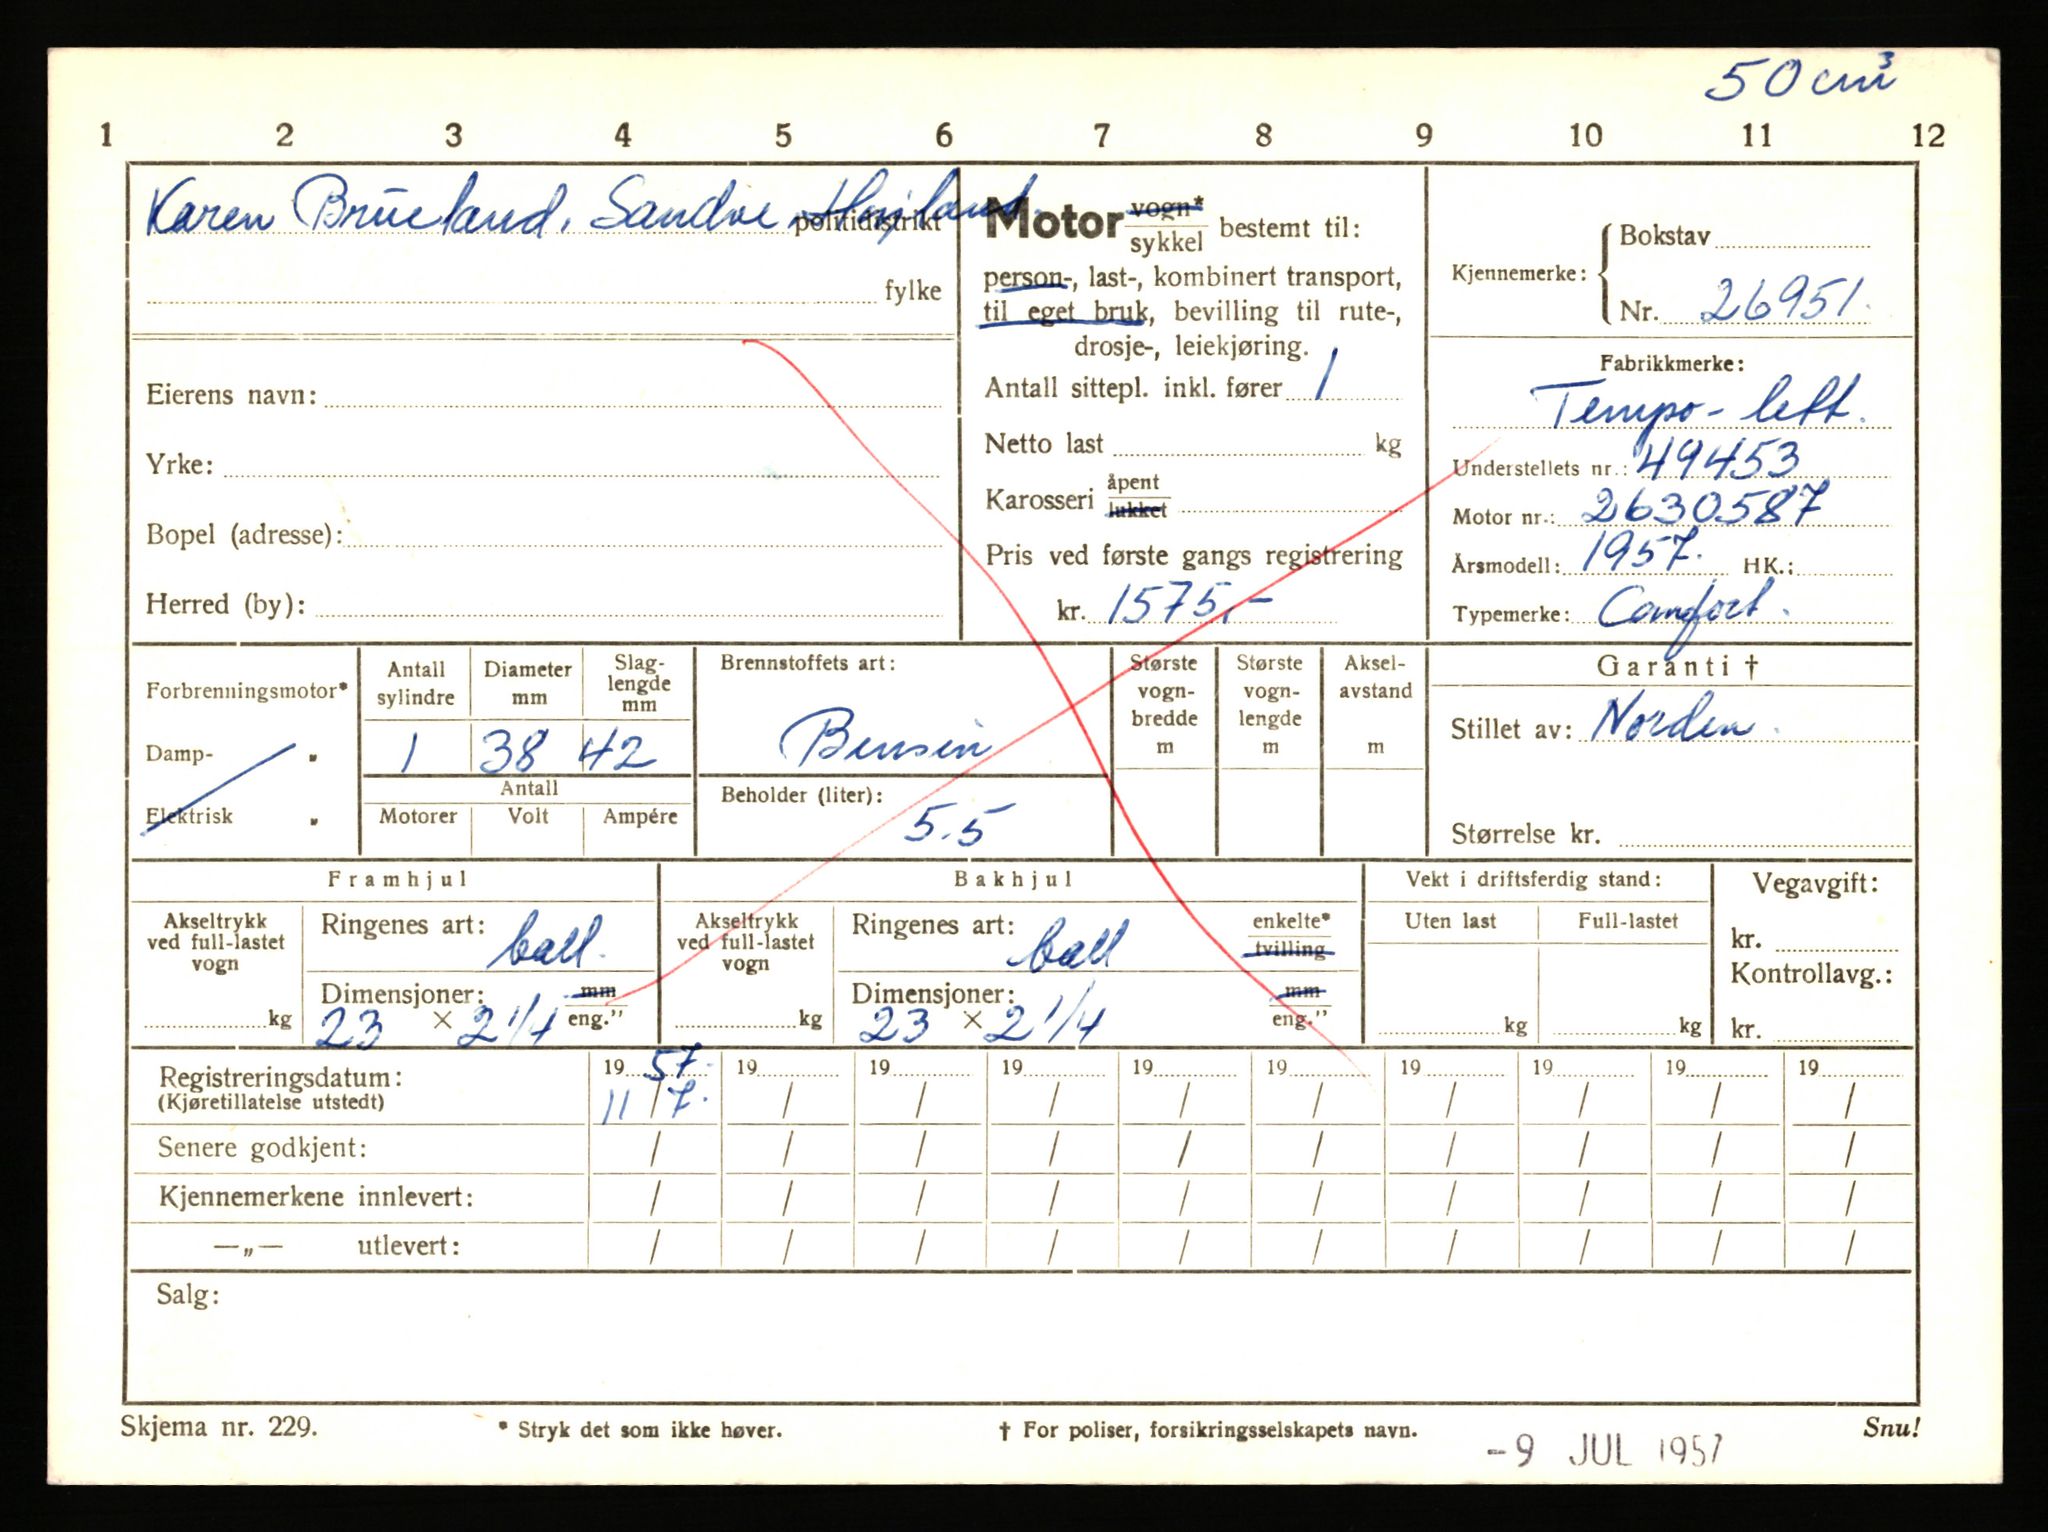 50 cm³
1 2 3 4 5 6 7 8 9 10 11 12
Karen Brueland, Sandve Høyland.
politidistrikt
fylke
Eierens navn:
Yrke:
Bopel (adresse):
Herred (by):
Motor vogn* / sykkel bestemt til:
person-, last-, kombinert transport,
til eget bruk, bevilling til rute-,
drosje-, leiekjøring.
Antall sittepl. inkl. fører 1
Netto last kg
Karosseri åpent / lukket
Pris ved første gangs registrering
kr. 1575,-
Kjennemerke: Bokstav
Nr. 26951.
Fabrikkmerke:
Tempo - lett.
Understellets nr.: 49453
Motor nr.: 2630587
Årsmodell: 1957. HK.:
Typemerke: Comfort.
Forbrenningsmotor*
Damp- "
Elektrisk "
Antall sylindre 1
Diameter mm 38
Slag-lengde mm 42
Antall
Motorer Volt Ampére
Brennstoffets art:
Bensin
Beholder (liter):
5.5
Største vogn-bredde m
Største vogn-lengde m
Aksel-avstand m
Garanti †
Stillet av: Norden.
Størrelse kr.
Framhjul
Akseltrykk ved full-lastet vogn
kg
Ringenes art: ball.
Dimensjoner: mm / eng."
23 × 2 1/4
Bakhjul
Akseltrykk ved full-lastet vogn
kg
Ringenes art: ball enkelte* / tvilling
Dimensjoner: mm / eng."
23 × 2 1/4
Vekt i driftsferdig stand:
Uten last Full-lastet
kg kg
Vegavgift:
kr.
Kontrollavg.:
kr.
Registreringsdatum: 19 57. 19 19 19 19 19 19 19 19 19
(Kjøretillatelse utstedt) 11 / 7. / / / / / / / / /
Senere godkjent: / / / / / / / / / /
Kjennemerkene innlevert: / / / / / / / / / /
—„— utlevert: / / / / / / / / / /
Salg:
Skjema nr. 229. * Stryk det som ikke høver. † For poliser, forsikringsselskapets navn. Snu!
-9 JUL 1957